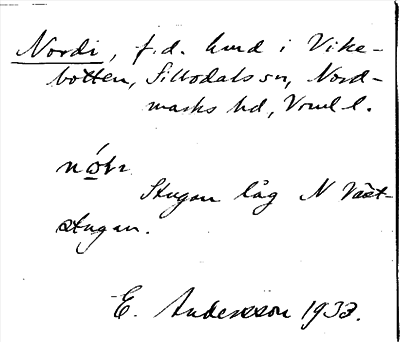 Nordi, f.d. lund i Vike-
botten, Sillbodals sn, Nord-
marks hd, Vrml l.
Stugan låg N Väst-
stugan.
E. Andersson 1933.